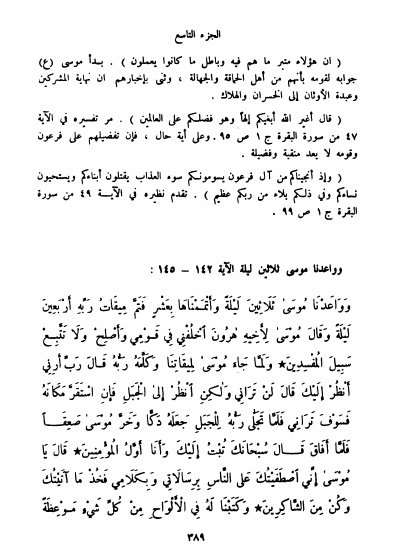 الجزء التاسع
( ان هؤلاء متبر ما هم فيه وباطل ما كانوا يعملون ) . بدأ موسى (ع)
جوابه لقومه بأنهم من أهل الحماقة والجهالة ، وثنى بإخبارهم ان نهاية المشركين
وعبدة الأوثان إلى الخسران والهلاك .
( قال أغير الله أبغيكم إلهاً وهو فضلكم على العالمين ) . مر تفسيره في الآية
٤٧ من سورة البقرة ج ١ ص ٩٥ . وعلى أية حال ، فإن تفضيلهم على فرعون
وقومه لا يعد منقبة وفضيلة .
( وإذ أنجيناكم من آل فرعون يسومونكم سوء العذاب يقتلون أبناءكم ويستحيون
نساءكم وفي ذلكم بلاء من ربكم عظيم ) . تقدم نظيره في الآية ٤٩ من سورة
البقرة ج ١ ص ٩٩ .
وواعدنا موسى ثلاثين ليلة الآية ١٤٢ – ١٤٥ :
وَوَاعَدْنَا مُوسَىٰ ثَلَاثِينَ لَيْلَةً وَأَتْمَمْنَاهَا بِعَشْرٍ فَتَمَّ مِيقَاتُ رَبِّهِ أَرْبَعِينَ
لَيْلَةً وَقَالَ مُوسَىٰ لِأَخِيهِ هَٰرُونَ اخْلُفْنِي فِي قَوْمِي وَأَصْلِحْ وَلَا تَتَّبِعْ
سَبِيلَ الْمُفْسِدِينَ * وَلَمَّا جَاءَ مُوسَىٰ لِمِيقَاتِنَا وَكَلَّمَهُ رَبُّهُ قَالَ رَبِّ أَرِنِي
أَنْظُرْ إِلَيْكَ قَالَ لَنْ تَرَانِي وَلَٰكِنِ انْظُرْ إِلَى الْجَبَلِ فَإِنِ اسْتَقَرَّ مَكَانَهُ
فَسَوْفَ تَرَانِي فَلَمَّا تَجَلَّىٰ رَبُّهُ لِلْجَبَلِ جَعَلَهُ دَكًّا وَخَرَّ مُوسَىٰ صَعِقًا
فَلَمَّا أَفَاقَ قَالَ سُبْحَانَكَ تُبْتُ إِلَيْكَ وَأَنَا أَوَّلُ الْمُؤْمِنِينَ * قَالَ يَا
مُوسَىٰ إِنِّي اصْطَفَيْتُكَ عَلَى النَّاسِ بِرِسَالَاتِي وَبِكَلَامِي فَخُذْ مَا آتَيْتُكَ
وَكُنْ مِنَ الشَّاكِرِينَ * وَكَتَبْنَا لَهُ فِي الْأَلْوَاحِ مِنْ كُلِّ شَيْءٍ مَوْعِظَةً
٣٨٩